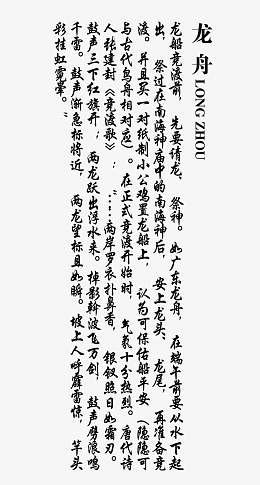 龙舟
LONG ZHOU
龙船竞渡前，先要请龙、祭神。如广东龙舟，在端午前要从水下起
出，祭过在南海神庙中的南海神后，安上龙头、龙尾，再准备竞
渡。并且买一对纸制小公鸡置龙船上，认为可保佑船平安（隐隐可
与古代鸟舟相对应）。在正式竞渡开始时，气氛十分热烈。唐代诗
人张建封《竞渡歌》：“……两岸罗衣扑鼻香，银钗照日如霜刃。
鼓声三下红旗开，两龙跃出浮水来。棹影斡波飞万剑，鼓声劈浪鸣
千雷。鼓声渐急标将近，两龙望标目如瞬。坡上人呼霹雳惊，竿头
彩挂虹霓晕。”